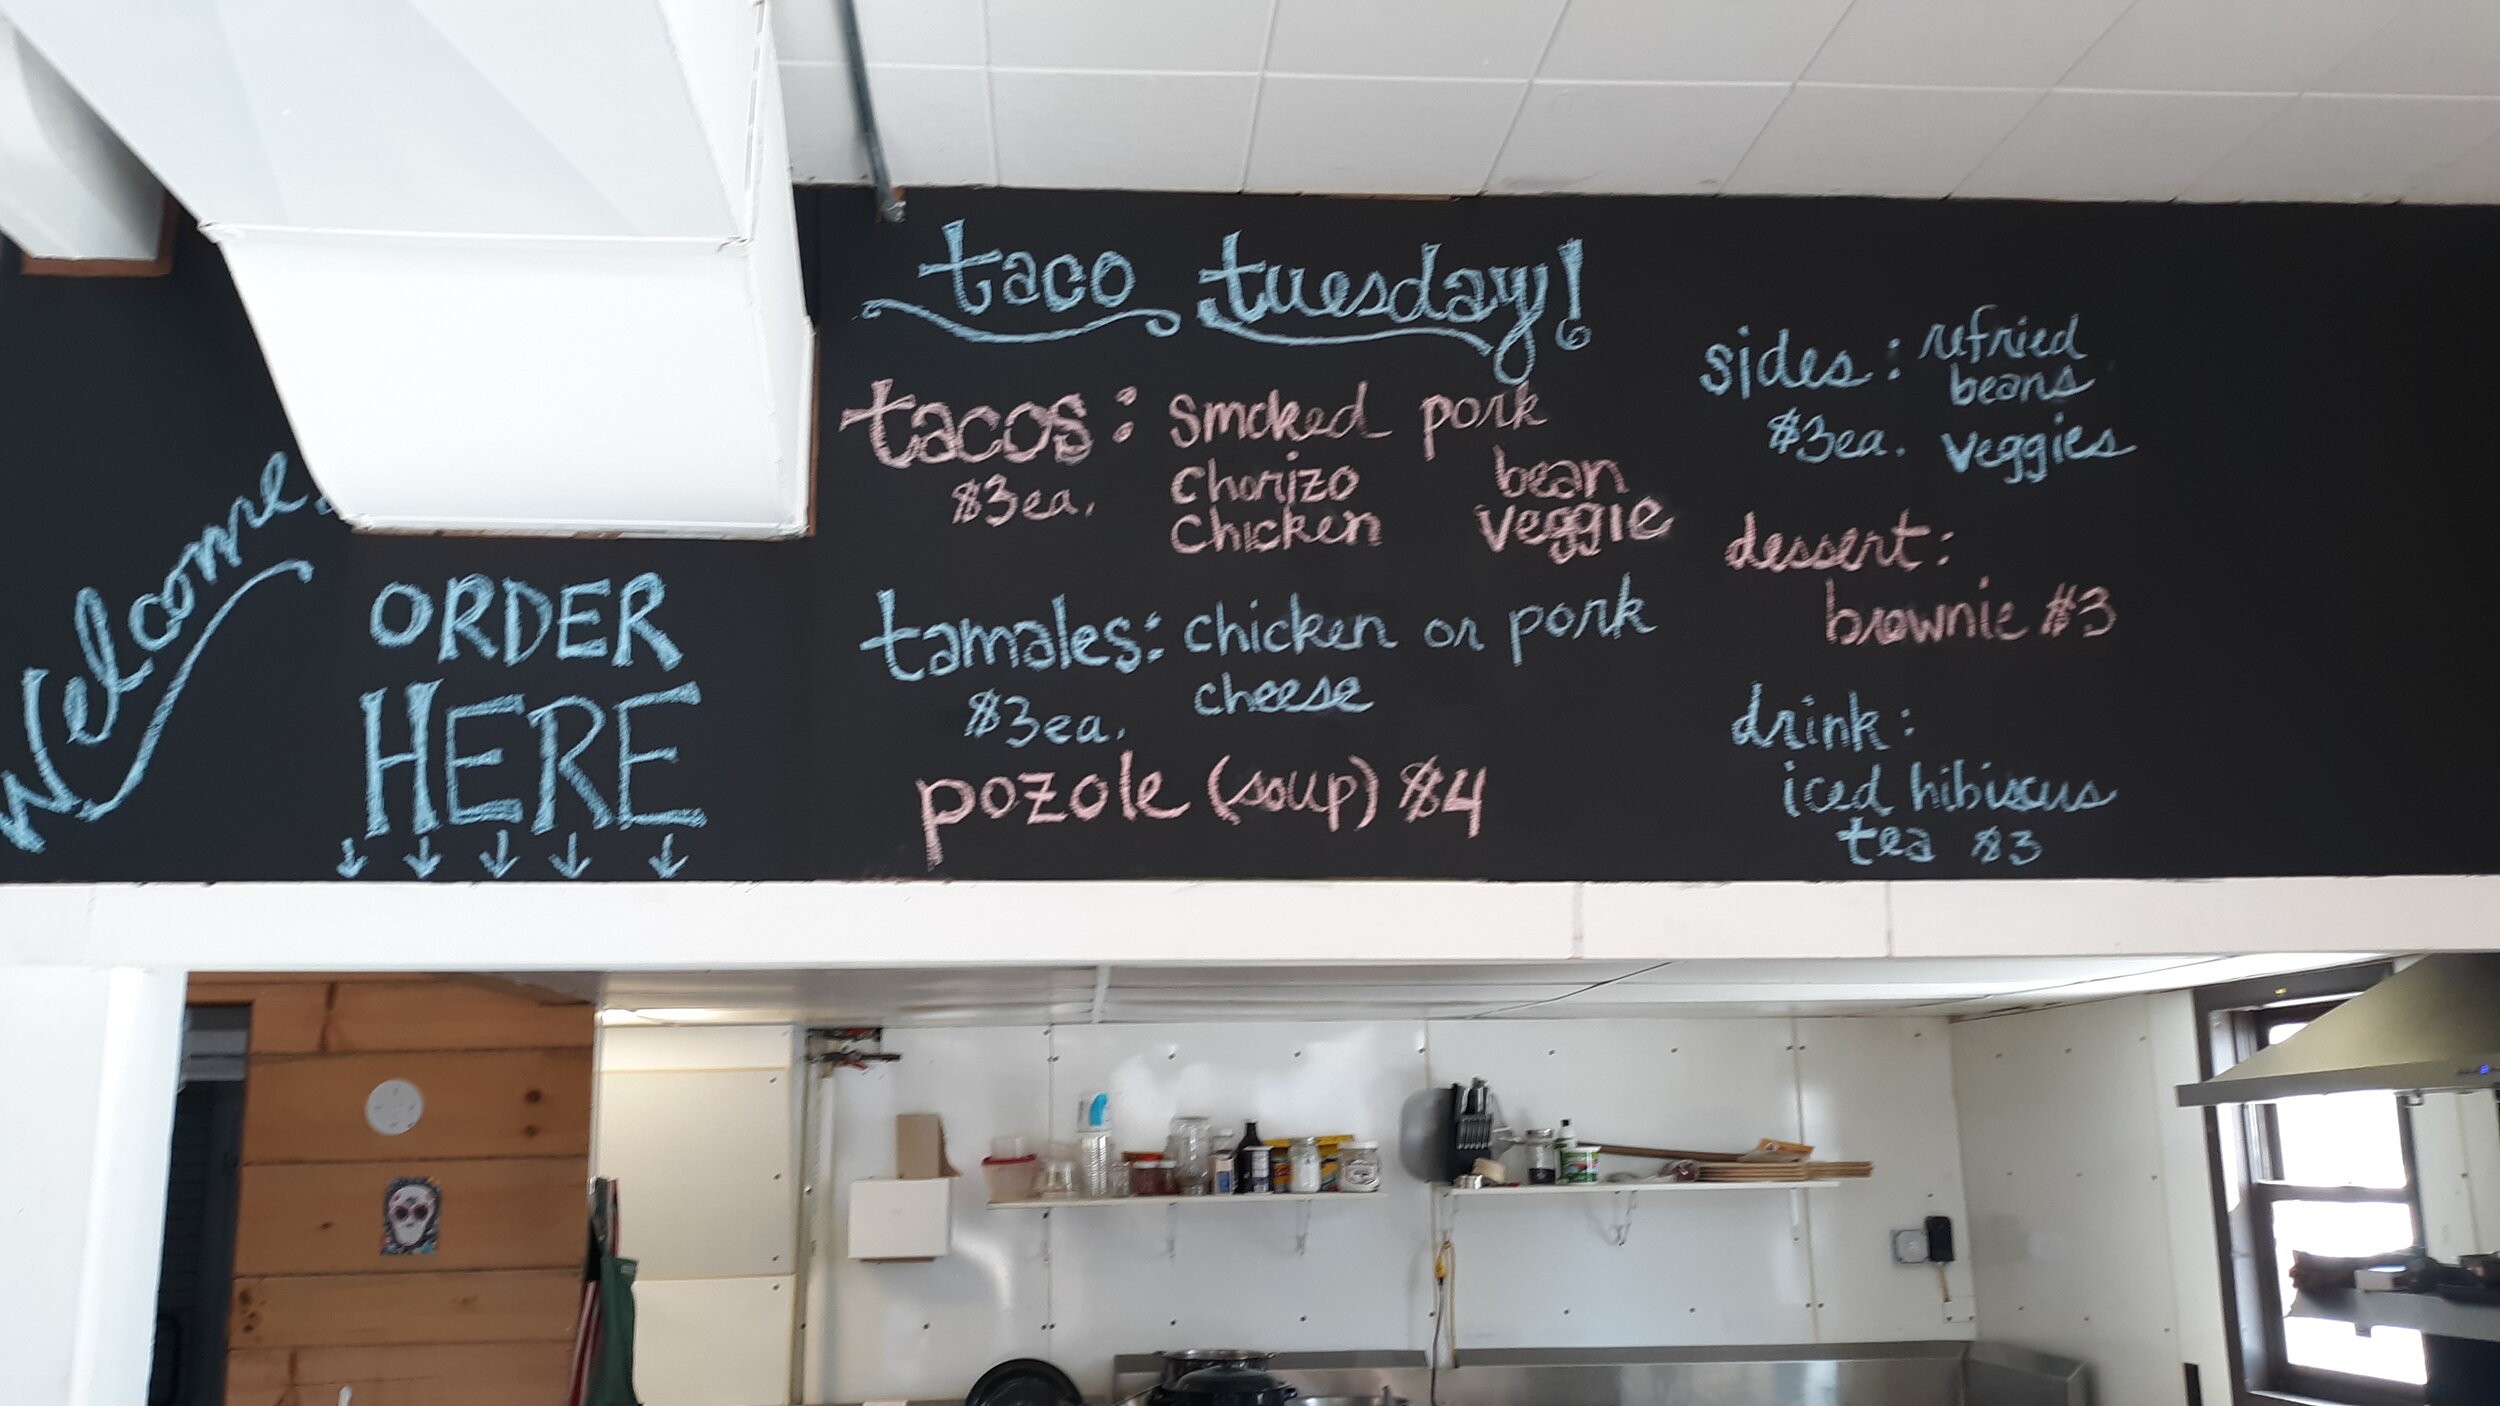 Welcome
ORDER
HERE
taco tuesday!
tacos: smoked pork
$3ea. chorizo bean
chicken veggie
tamales: chicken or pork
$3ea. cheese
pozole (soup) $4
sides: refried
beans
$3ea. veggies
dessert:
brownie $3
drink:
iced hibiscus
tea $3